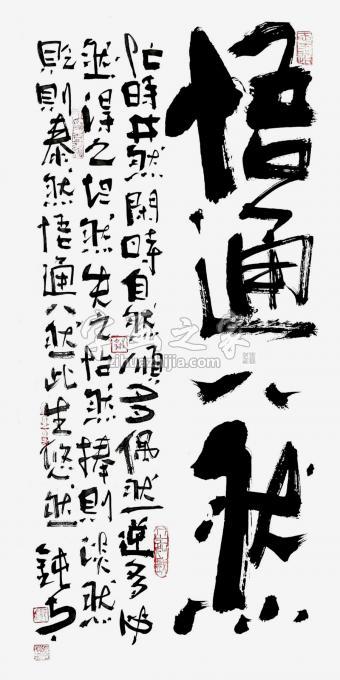 悟通八然
忙時井然閑時自然順多偶然逆多必
然得之坦然失之怡然捧則淡然
貶則泰然悟通八然此生悠然
字画之家
zihuazhijia.com